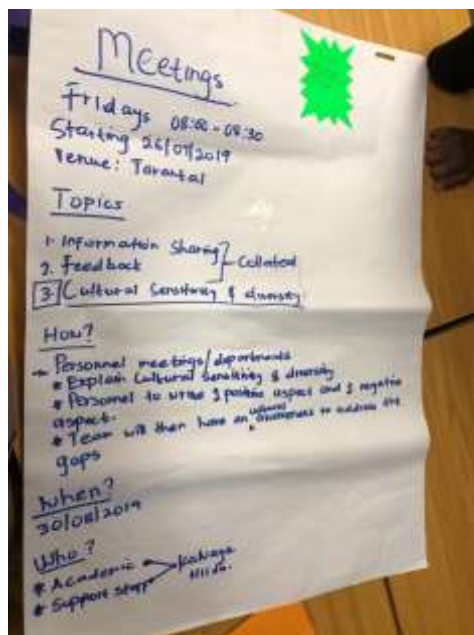 Meetings
Fridays 08:00 - 08:30
Starting 26/07/2019
Venue: Tarantal
Topics
1. Information Sharing
2. Feedback
Collated
3. Cultural Sensitivity & diversity
How?
→ Personnel meetings/departments
* Explain Cultural Sensitivity & diversity
* Personnel to write 3 positive aspect and 3 negative
aspect.
* Team will then have an cultural awareness to address the
gaps
When?
30/08/2019
Who?
* Academic
* Support Staff